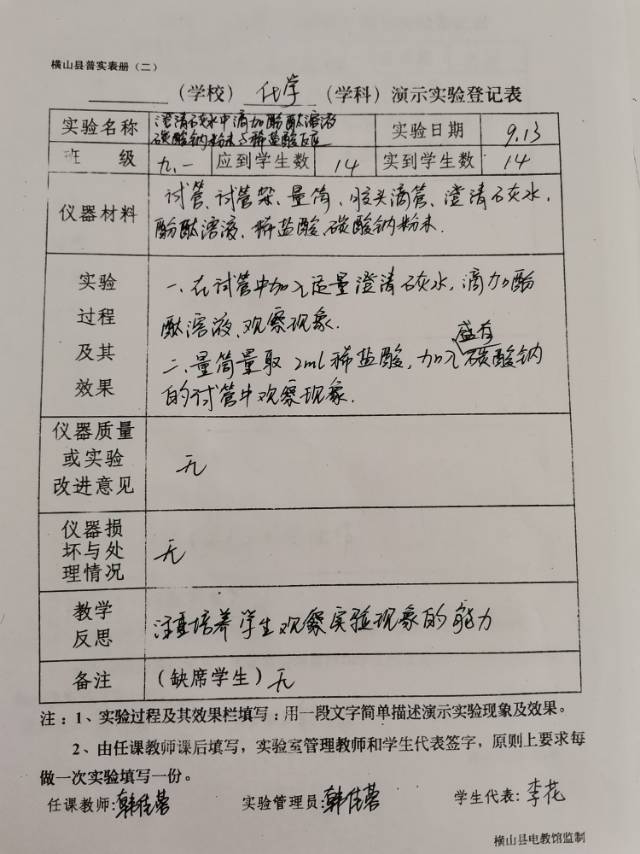 横山县普实表册（二）
（学校）化学（学科）演示实验登记表
实验名称 澄清石灰水中滴加酚酞溶液 实验日期 9.13
碳酸钠粉末与稀盐酸反应
班 级 九.一 应到学生数 14 实到学生数 14
仪器材料 试管、试管架、量筒、胶头滴管、澄清石灰水、
酚酞溶液、稀盐酸、碳酸钠粉末.
实验 一、在试管中加入适量澄清石灰水，滴加酚
过程 酞溶液、观察现象.
及其 二、量筒量取 2ml 稀盐酸，加入盛有碳酸钠
效果 的试管中观察现象.
仪器质量
或实验 无
改进意见
仪器损
坏与处 无
理情况
教学
反思 注重培养学生观察实验现象的能力
备注 （缺席学生）无
注：1、实验过程及其效果栏填写：用一段文字简单描述演示实验现象及效果。
2、由任课教师课后填写，实验室管理教师和学生代表签字，原则上要求每
做一次实验填写一份。
任课教师:韩佳蓉 实验管理员:韩佳蓉 学生代表:李花
横山县电教馆监制